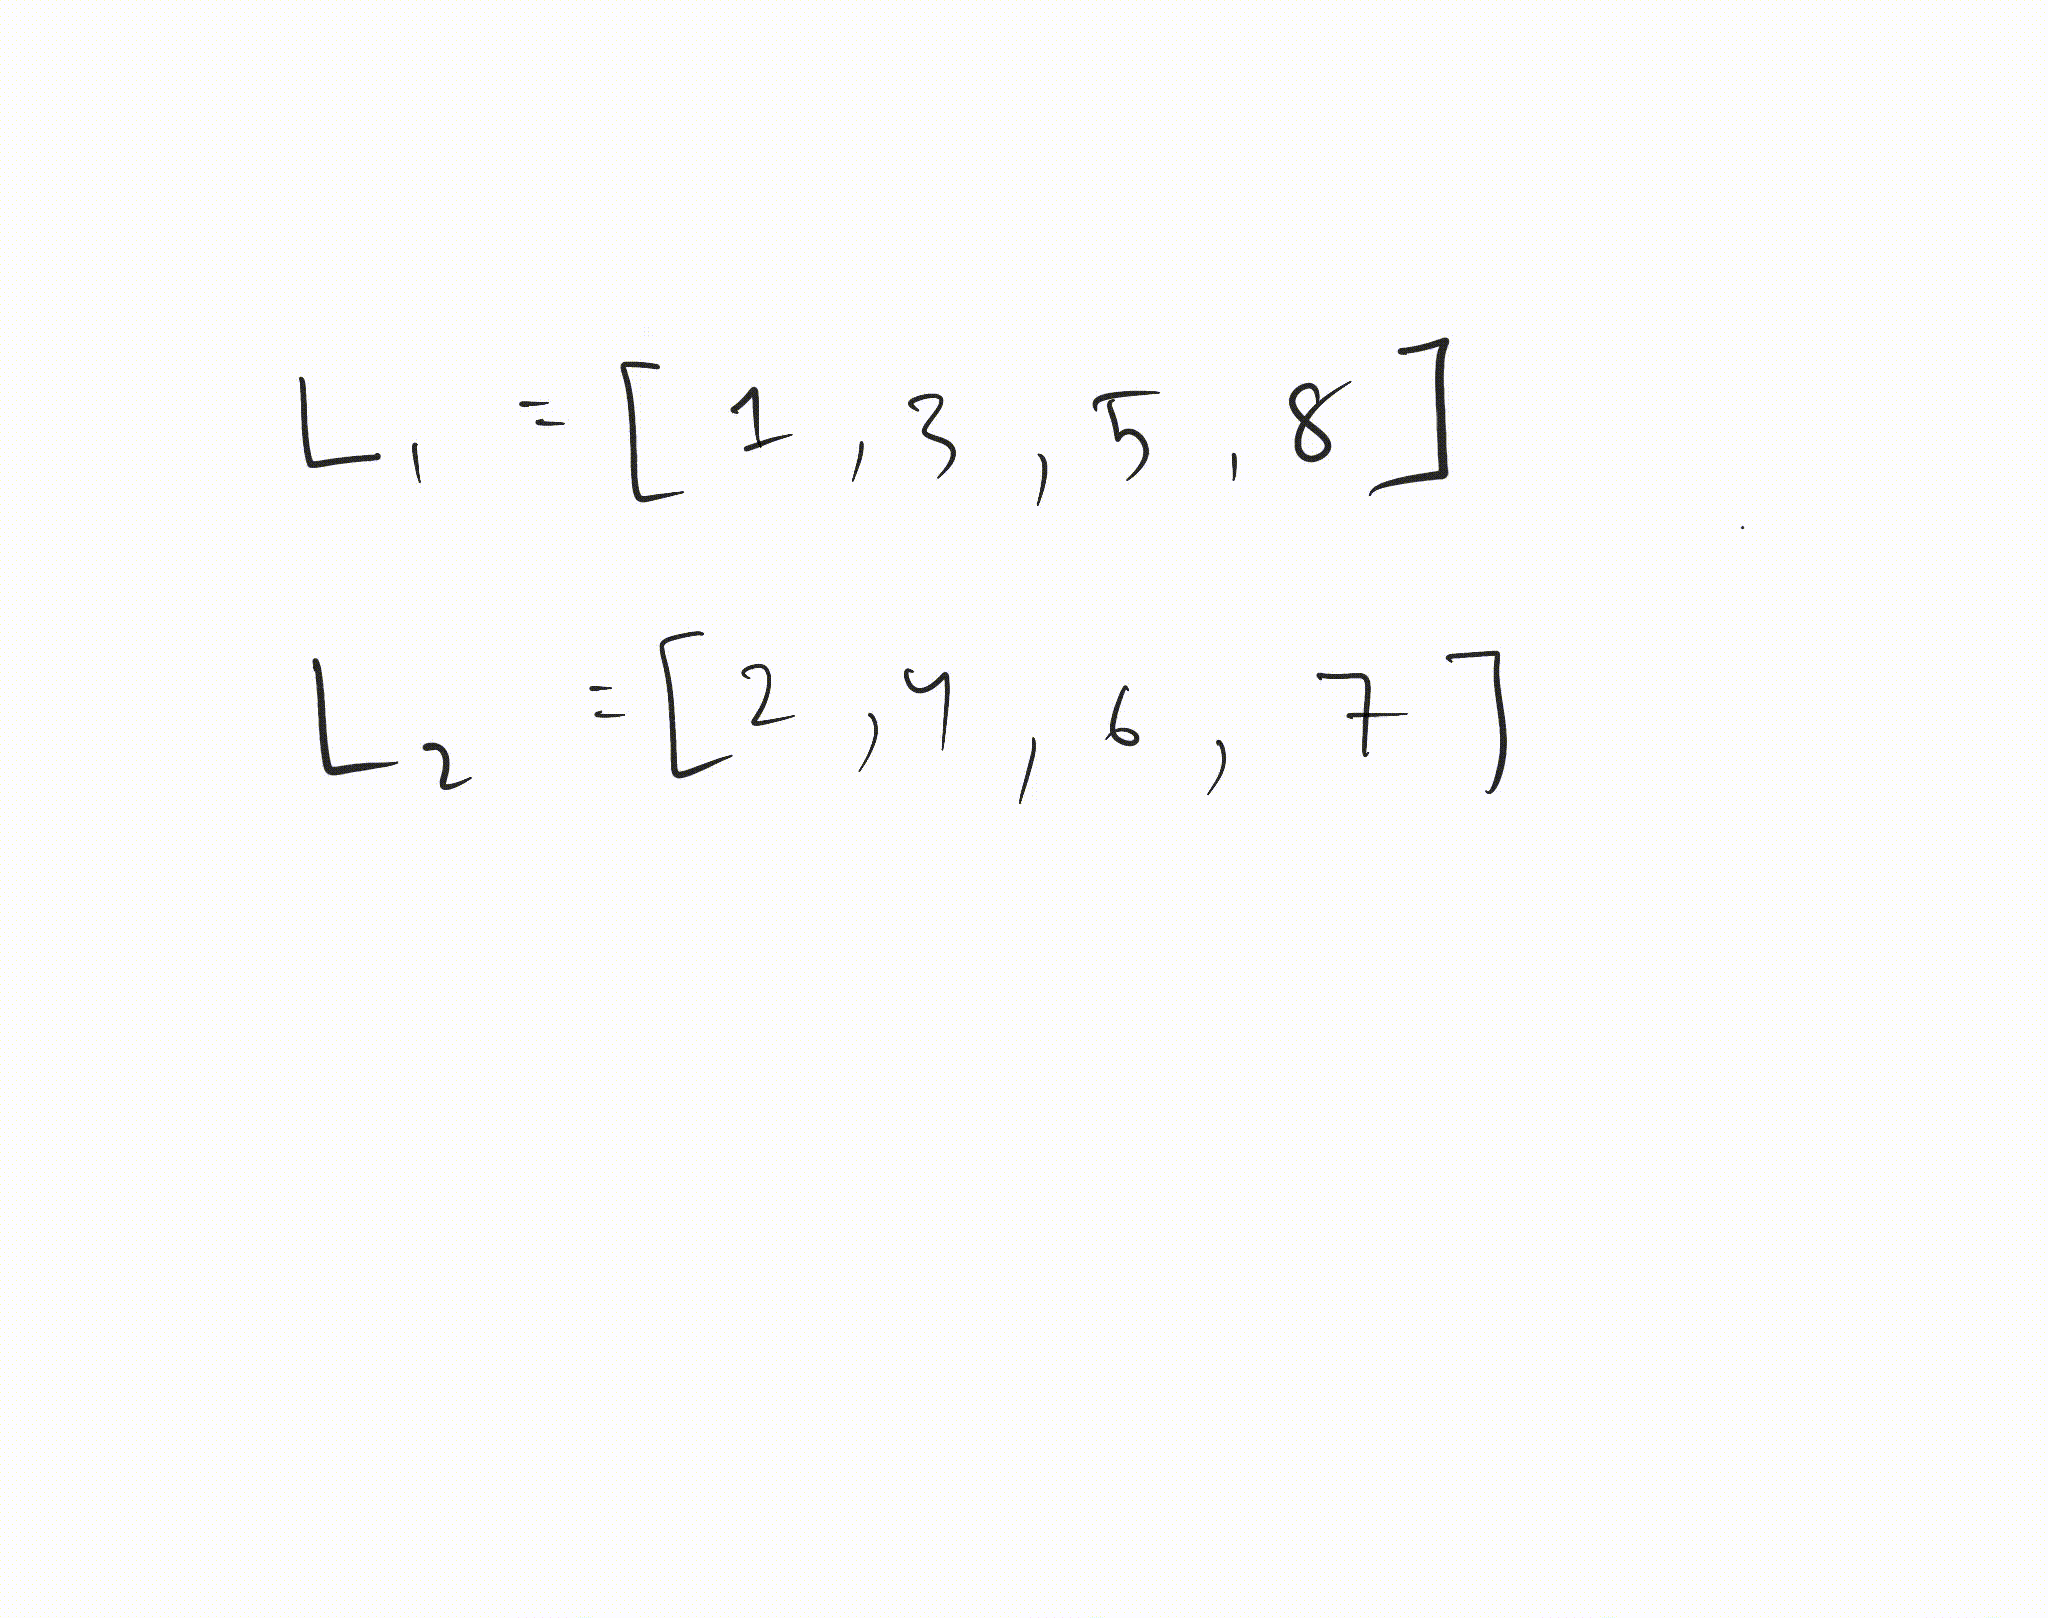 L₁ = [1, 3, 5, 8]
L₂ = [2, 4, 6, 7]